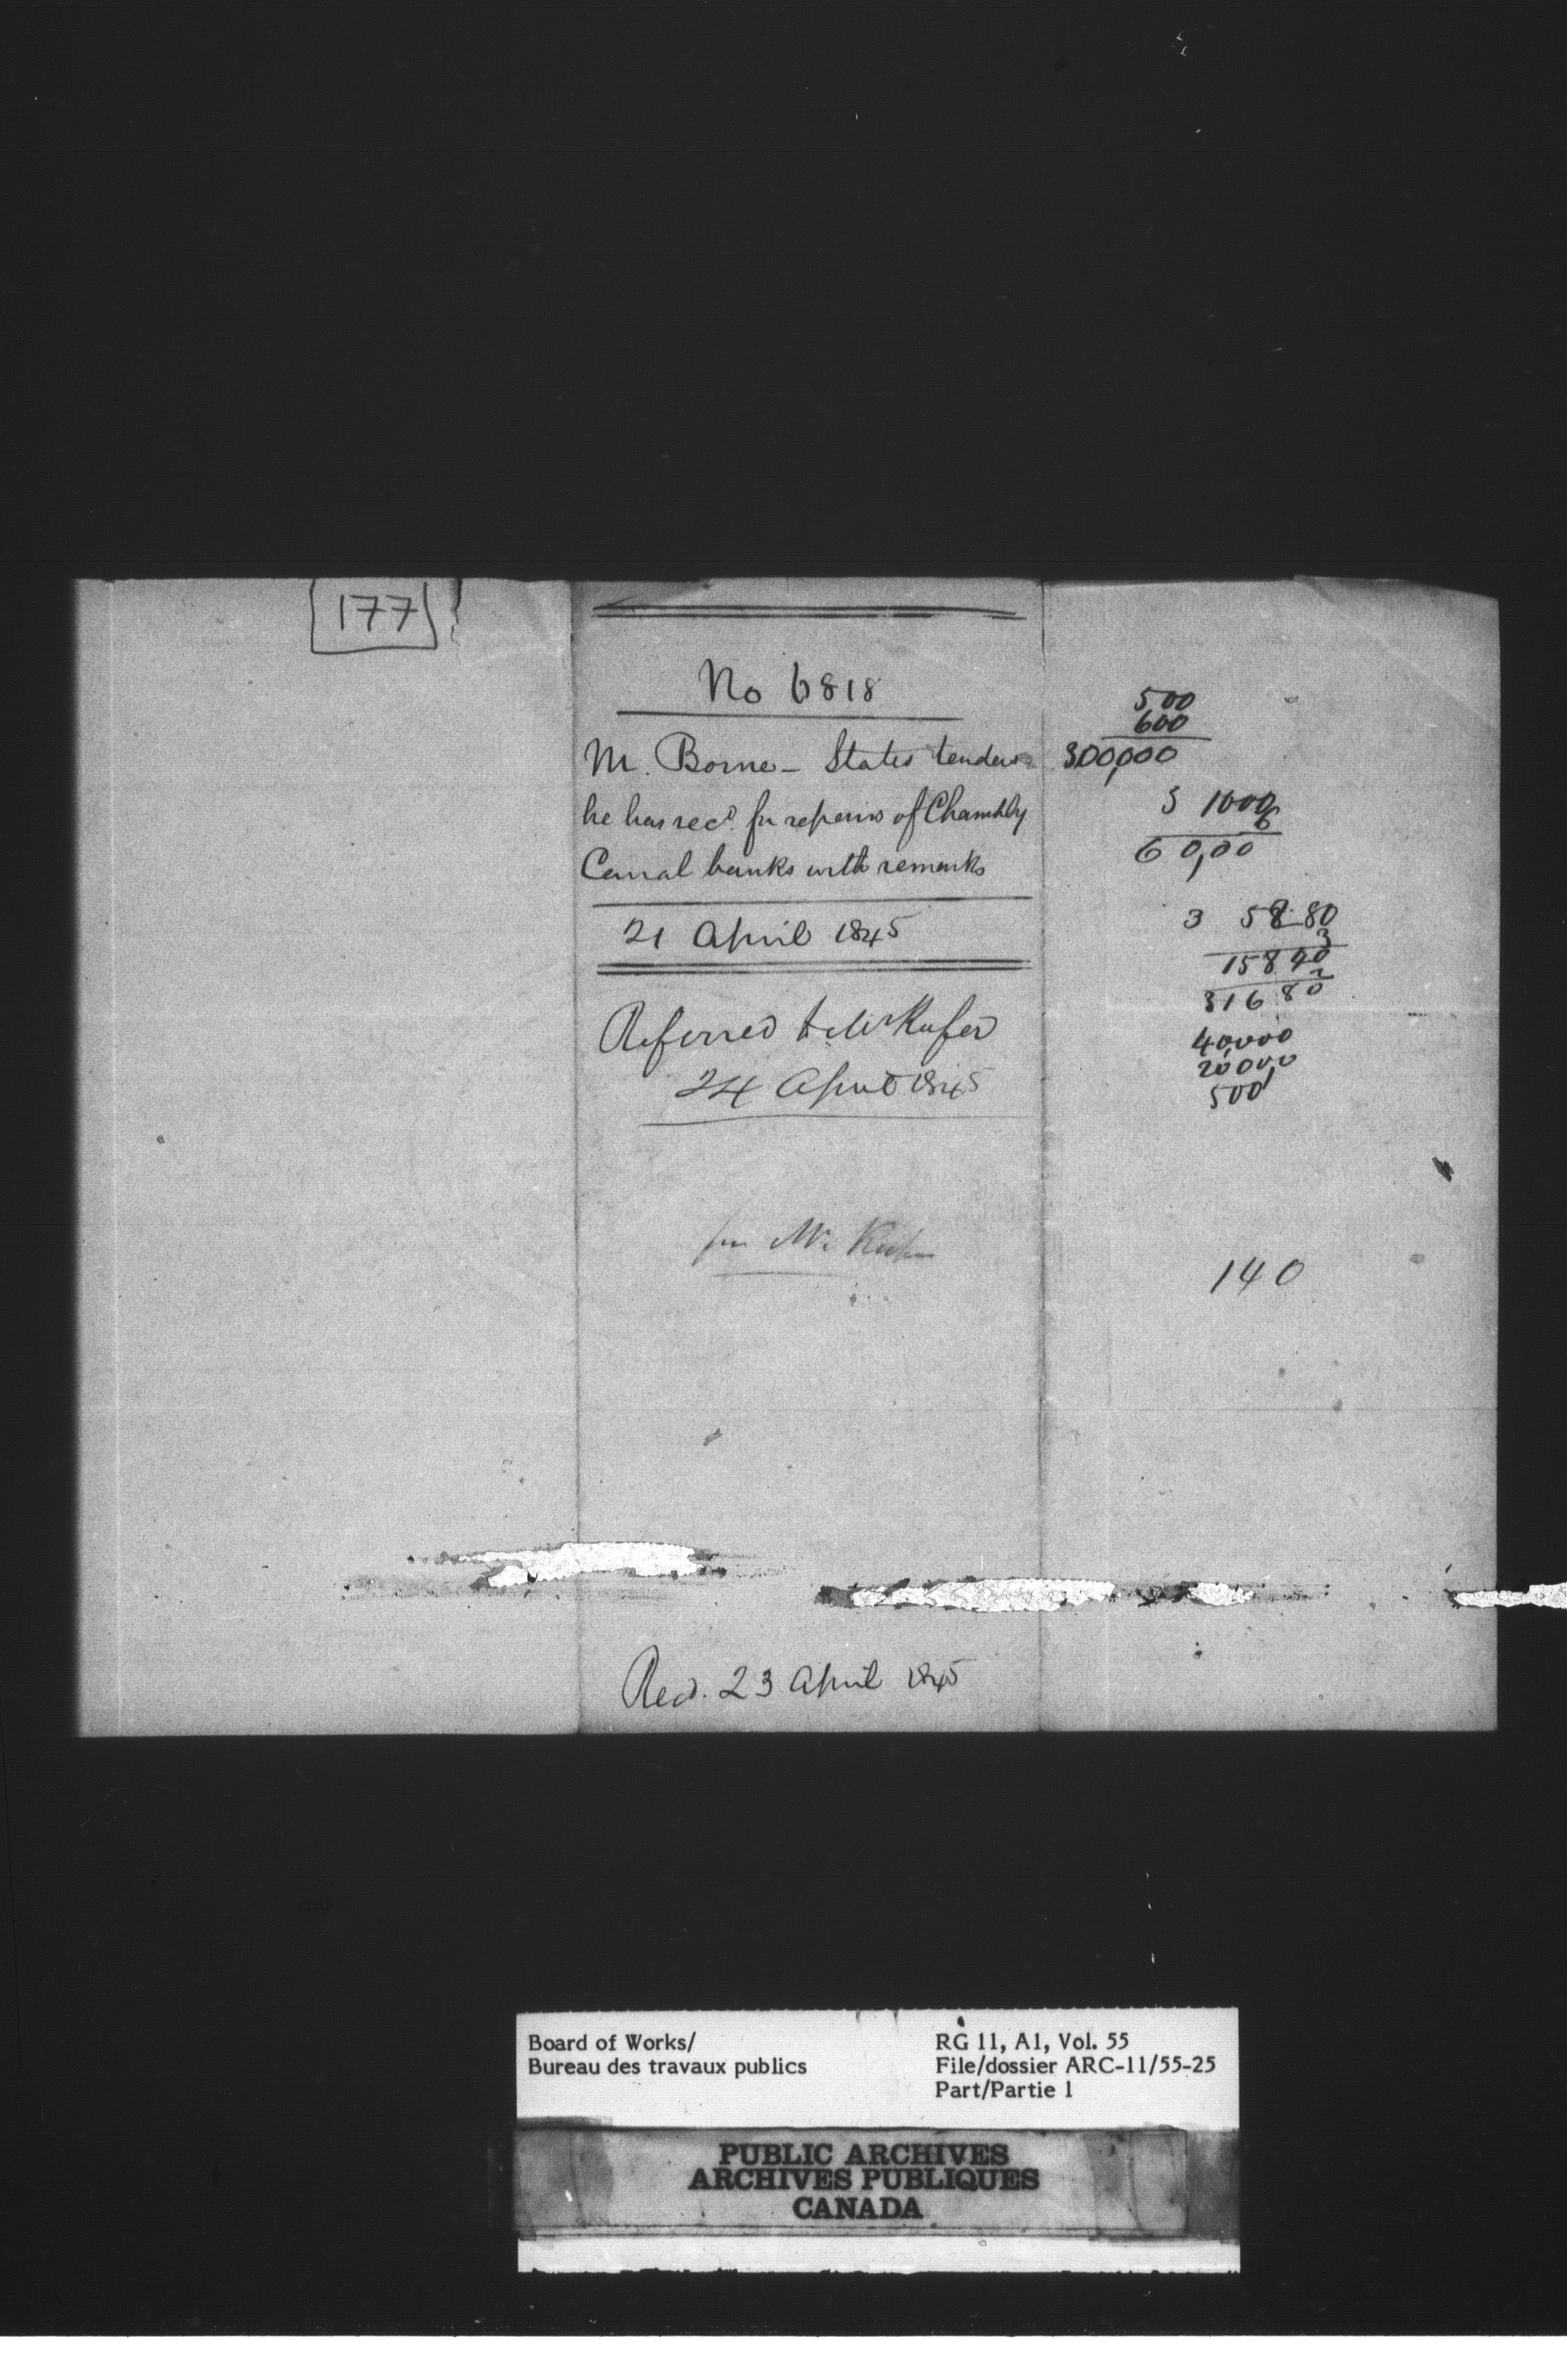 177
No 6818
M. Borne - States tenders
he has recd. for repairs of Chambly
Canal banks with remarks
21 April 1845
Referred to Mr Keefer
24 April 1845
for Mr
Recd. 23 April 1845
500
600
300,000
5 1000
6
60,00
3 5280
3
15840
2
31680
40,000
20,000
500
140
Board of Works/
Bureau des travaux publics
RG 11, A1, Vol. 55
File/dossier ARC-11/55-25
Part/Partie 1
PUBLIC ARCHIVES
ARCHIVES PUBLIQUES
CANADA